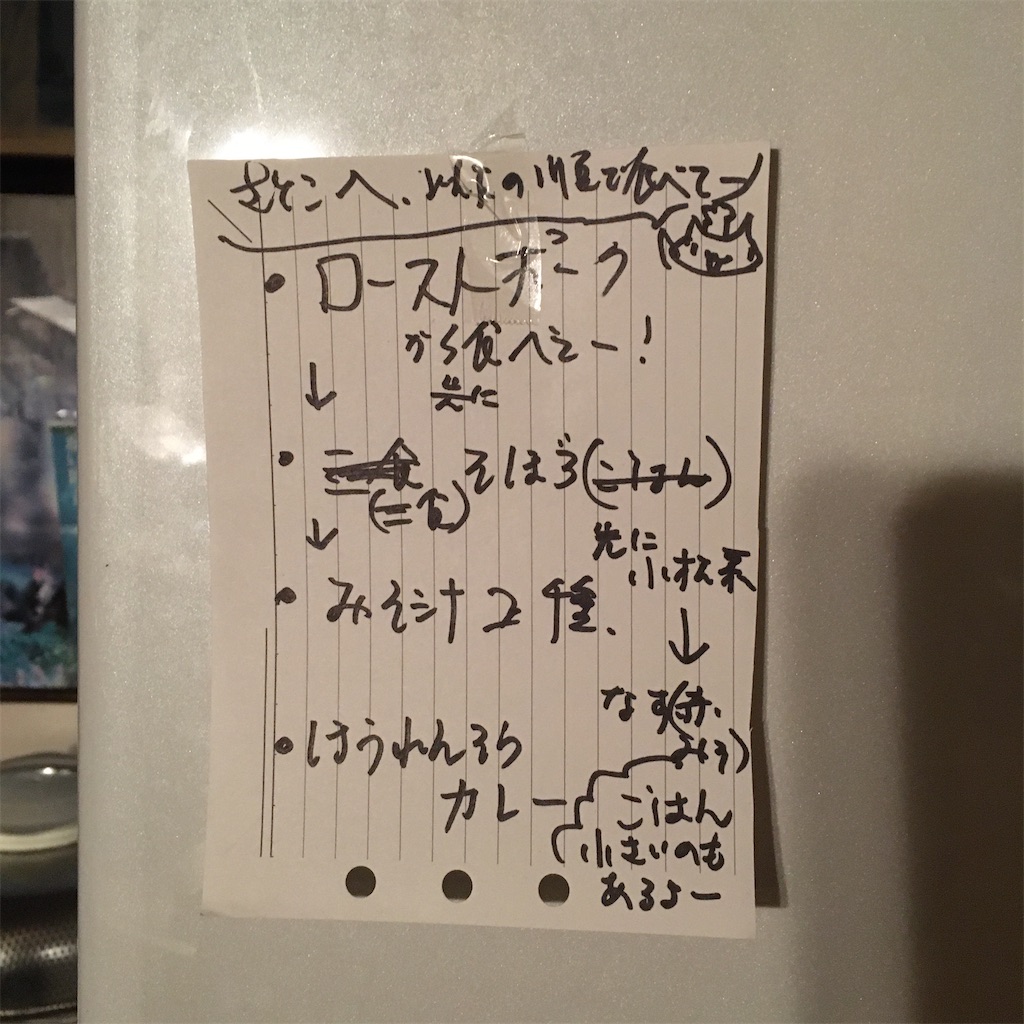 さとこへ、以下の順で食べてー
・ロースト ポーク
から食べてー!
↓ 先に
・三食 そぼろ(ごはん)
(二食)
↓
・みそ汁 2種、
先に
小松菜
↓
なす(赤
みそ)
・ほうれんそう
カレー
ごはん
小さいのも
あるよー